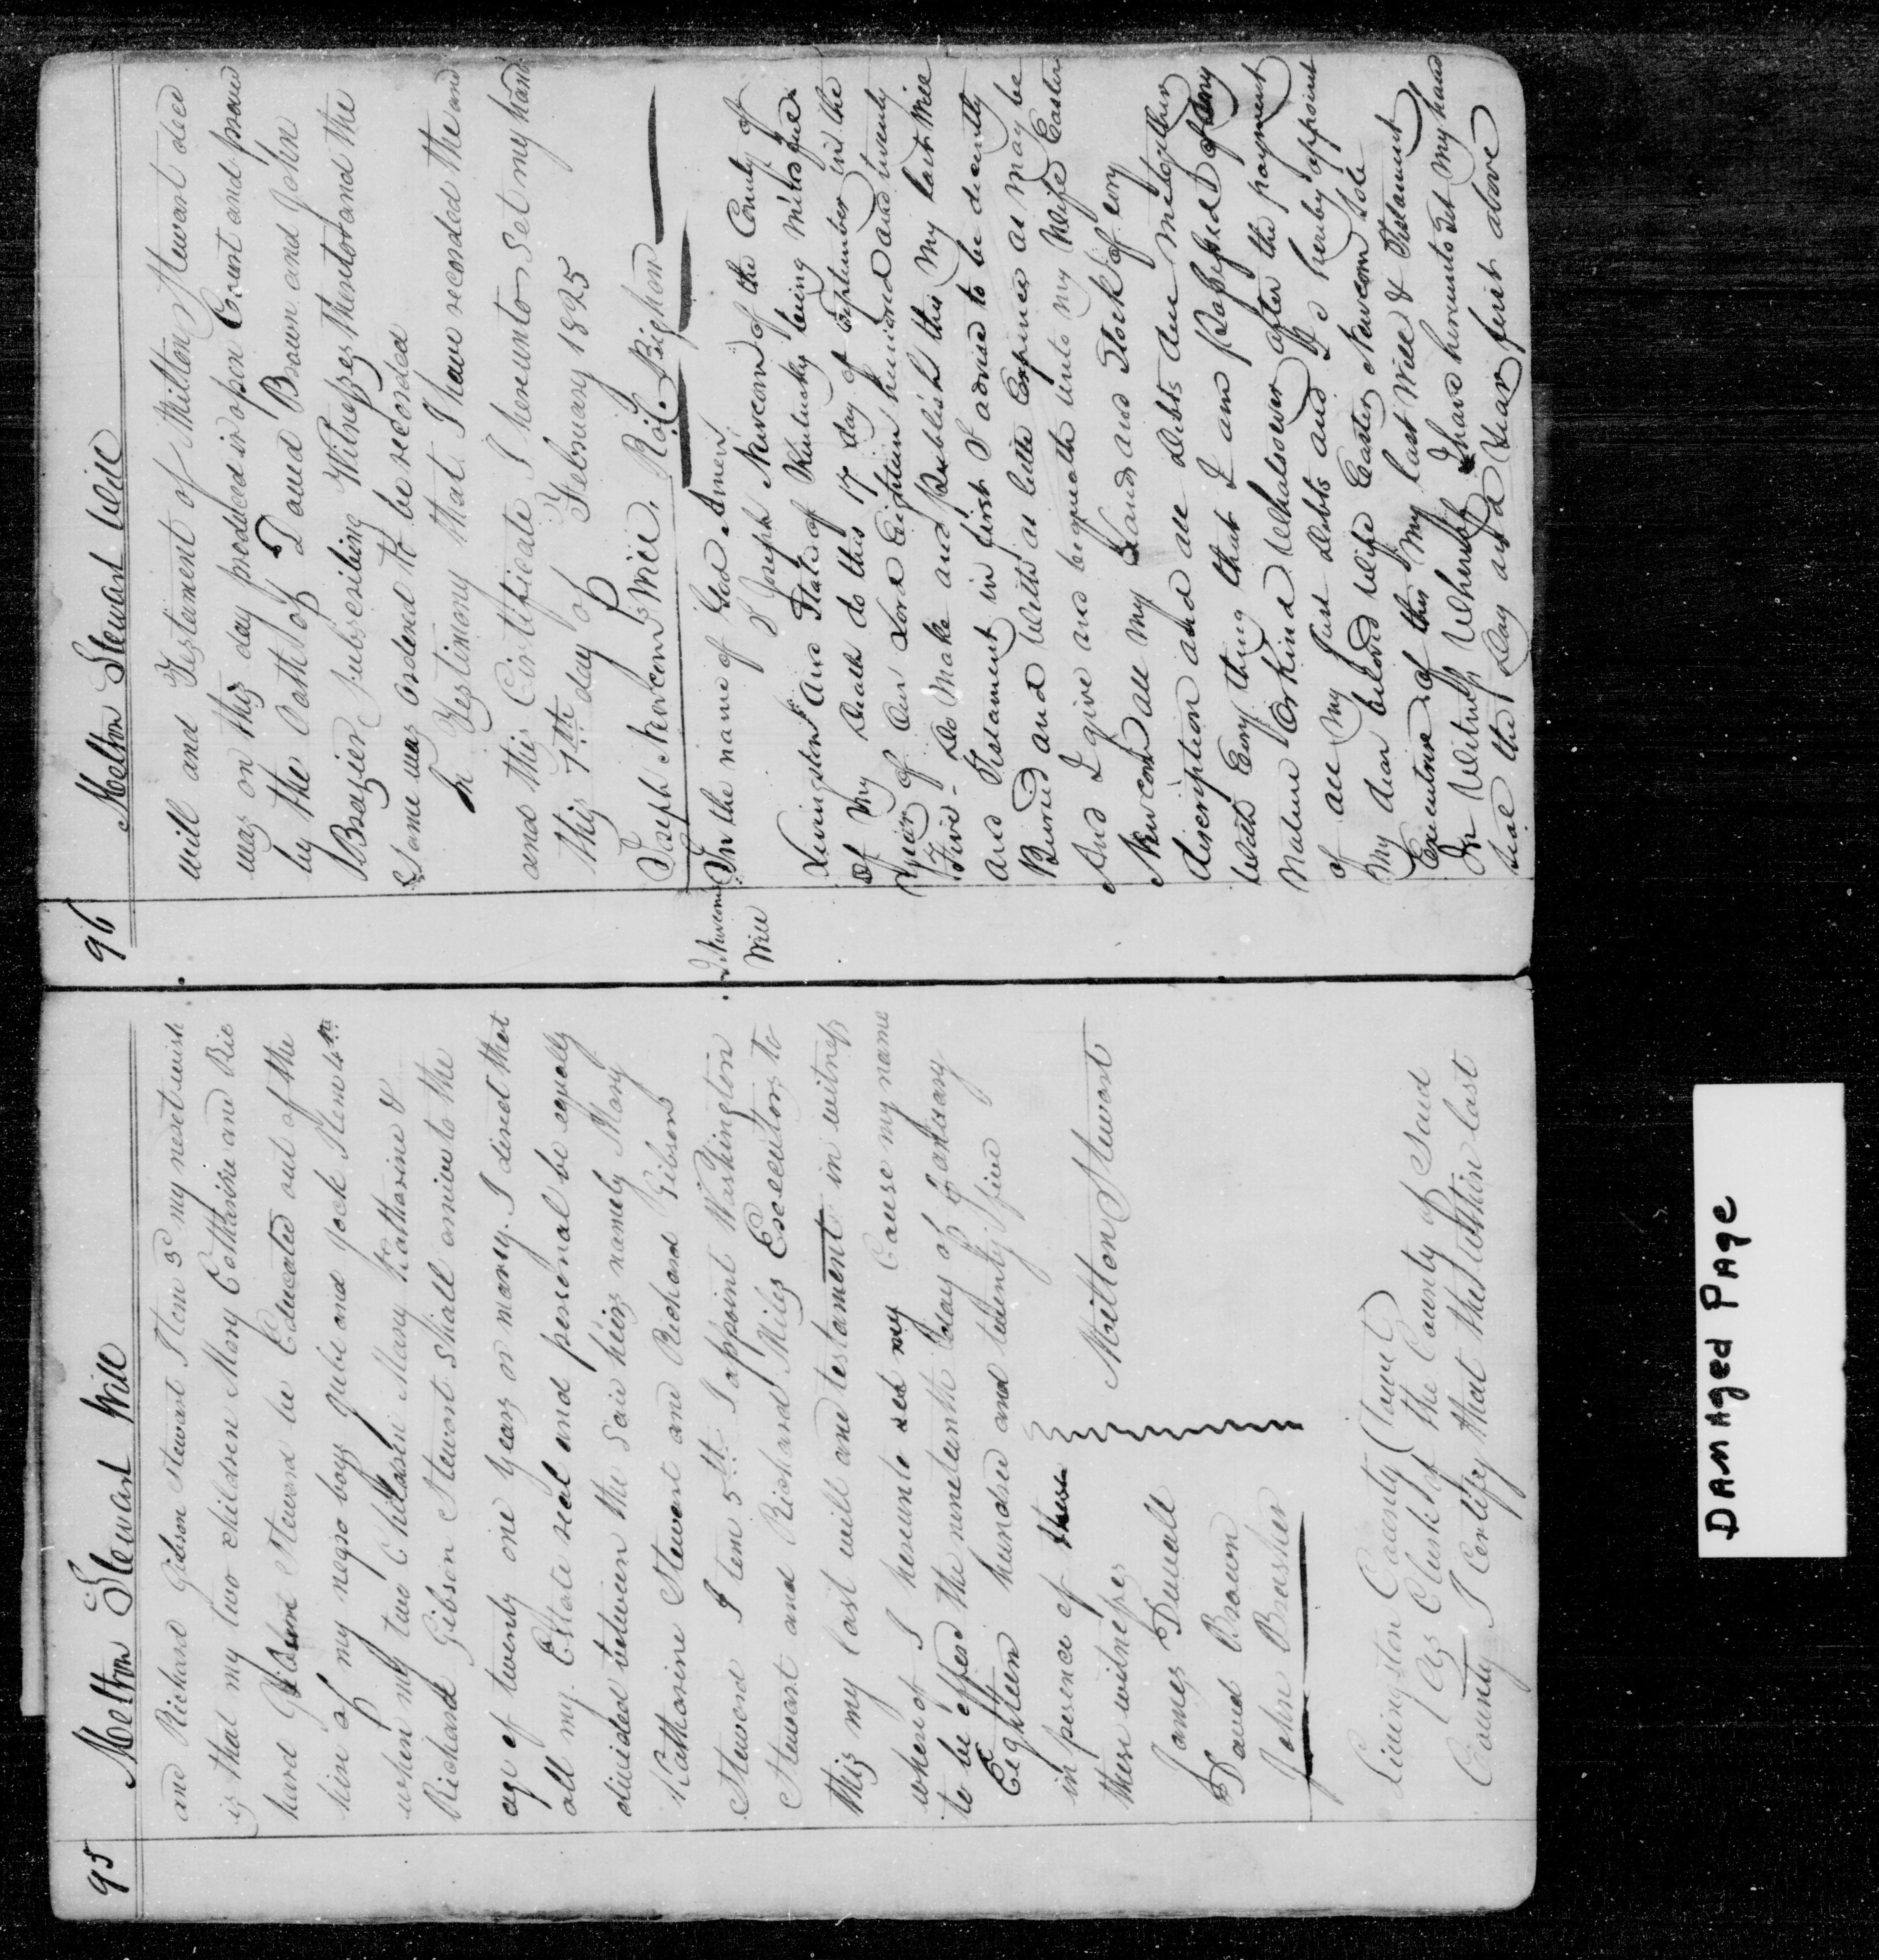 95
Melton Stewart Will
and Richard Gibson Stewart Item 3d my next wish
is that my two children Mary Catharine and Ric
hard Gibson Steward be Educated out of the
hire of my negro boys Jube and Jack Item 4th
when my two Children Mary Katharine &
Richard Gibson Stewart shall arrive to the
age of twenty one years or marry. I direct that
all my Estate real and personal be equally
divided between the said heirs namely Mary
Katharine Stewart and Richard Gibson
Steward Item 5th I appoint Washington
Stewart and Richard Miles Executors to
this my last will and testament in witness
whereof I hereunto set my Cause my name
to be affixed the nineteenth day of January
Eighteen hundred and twenty five
in persence of these
these witnesses
Melton Stewart
James Duvall
David Brown
John Brasher
Livingston County (Towit)
I as Clerk of the County of Said
County I Certify that the within last
96
Melton Stewart Will
will and Testament of Millton Stewart decd
was on this day produced in open Court and proved
by the Oath of David Brown and John
Brazier subscribing Witnesses thereto and the
Same was ordered to be recorded
In Testimony that I have recorded the and
and this Certificate I hereunto set my hand
this 7th day of February 1825
Joseph Newcom's Will. Rid. Bigham
J Newcoms
Will
In the name of God Amen
I Joseph Newcom of the County of
Livingston And State of Kentucky being Mindfull
Of My Death do this 17 day of September in the
Year of Our Lord Eighteen hundred and twenty
Five - Do Make and Publish this My last Will
And Testament in first I advise to be decently
Buried and With as little Expence as May be
And I give and bequeath unto My Wife Easter
Newcom all My Land and Stock of evry
discription and all debts due me together
With Evry thing that I am Possessed of any
Nature Or kind Whatsoever after the payment
of all My Just debts and I do hereby appoint
My dear beloved Wife Easter Newcom Sole
Executrix of this My last Will & Testament
In Witness Whereof I have hereunto Set My hand
Seal the Day and Year first above
DAMAged PAge